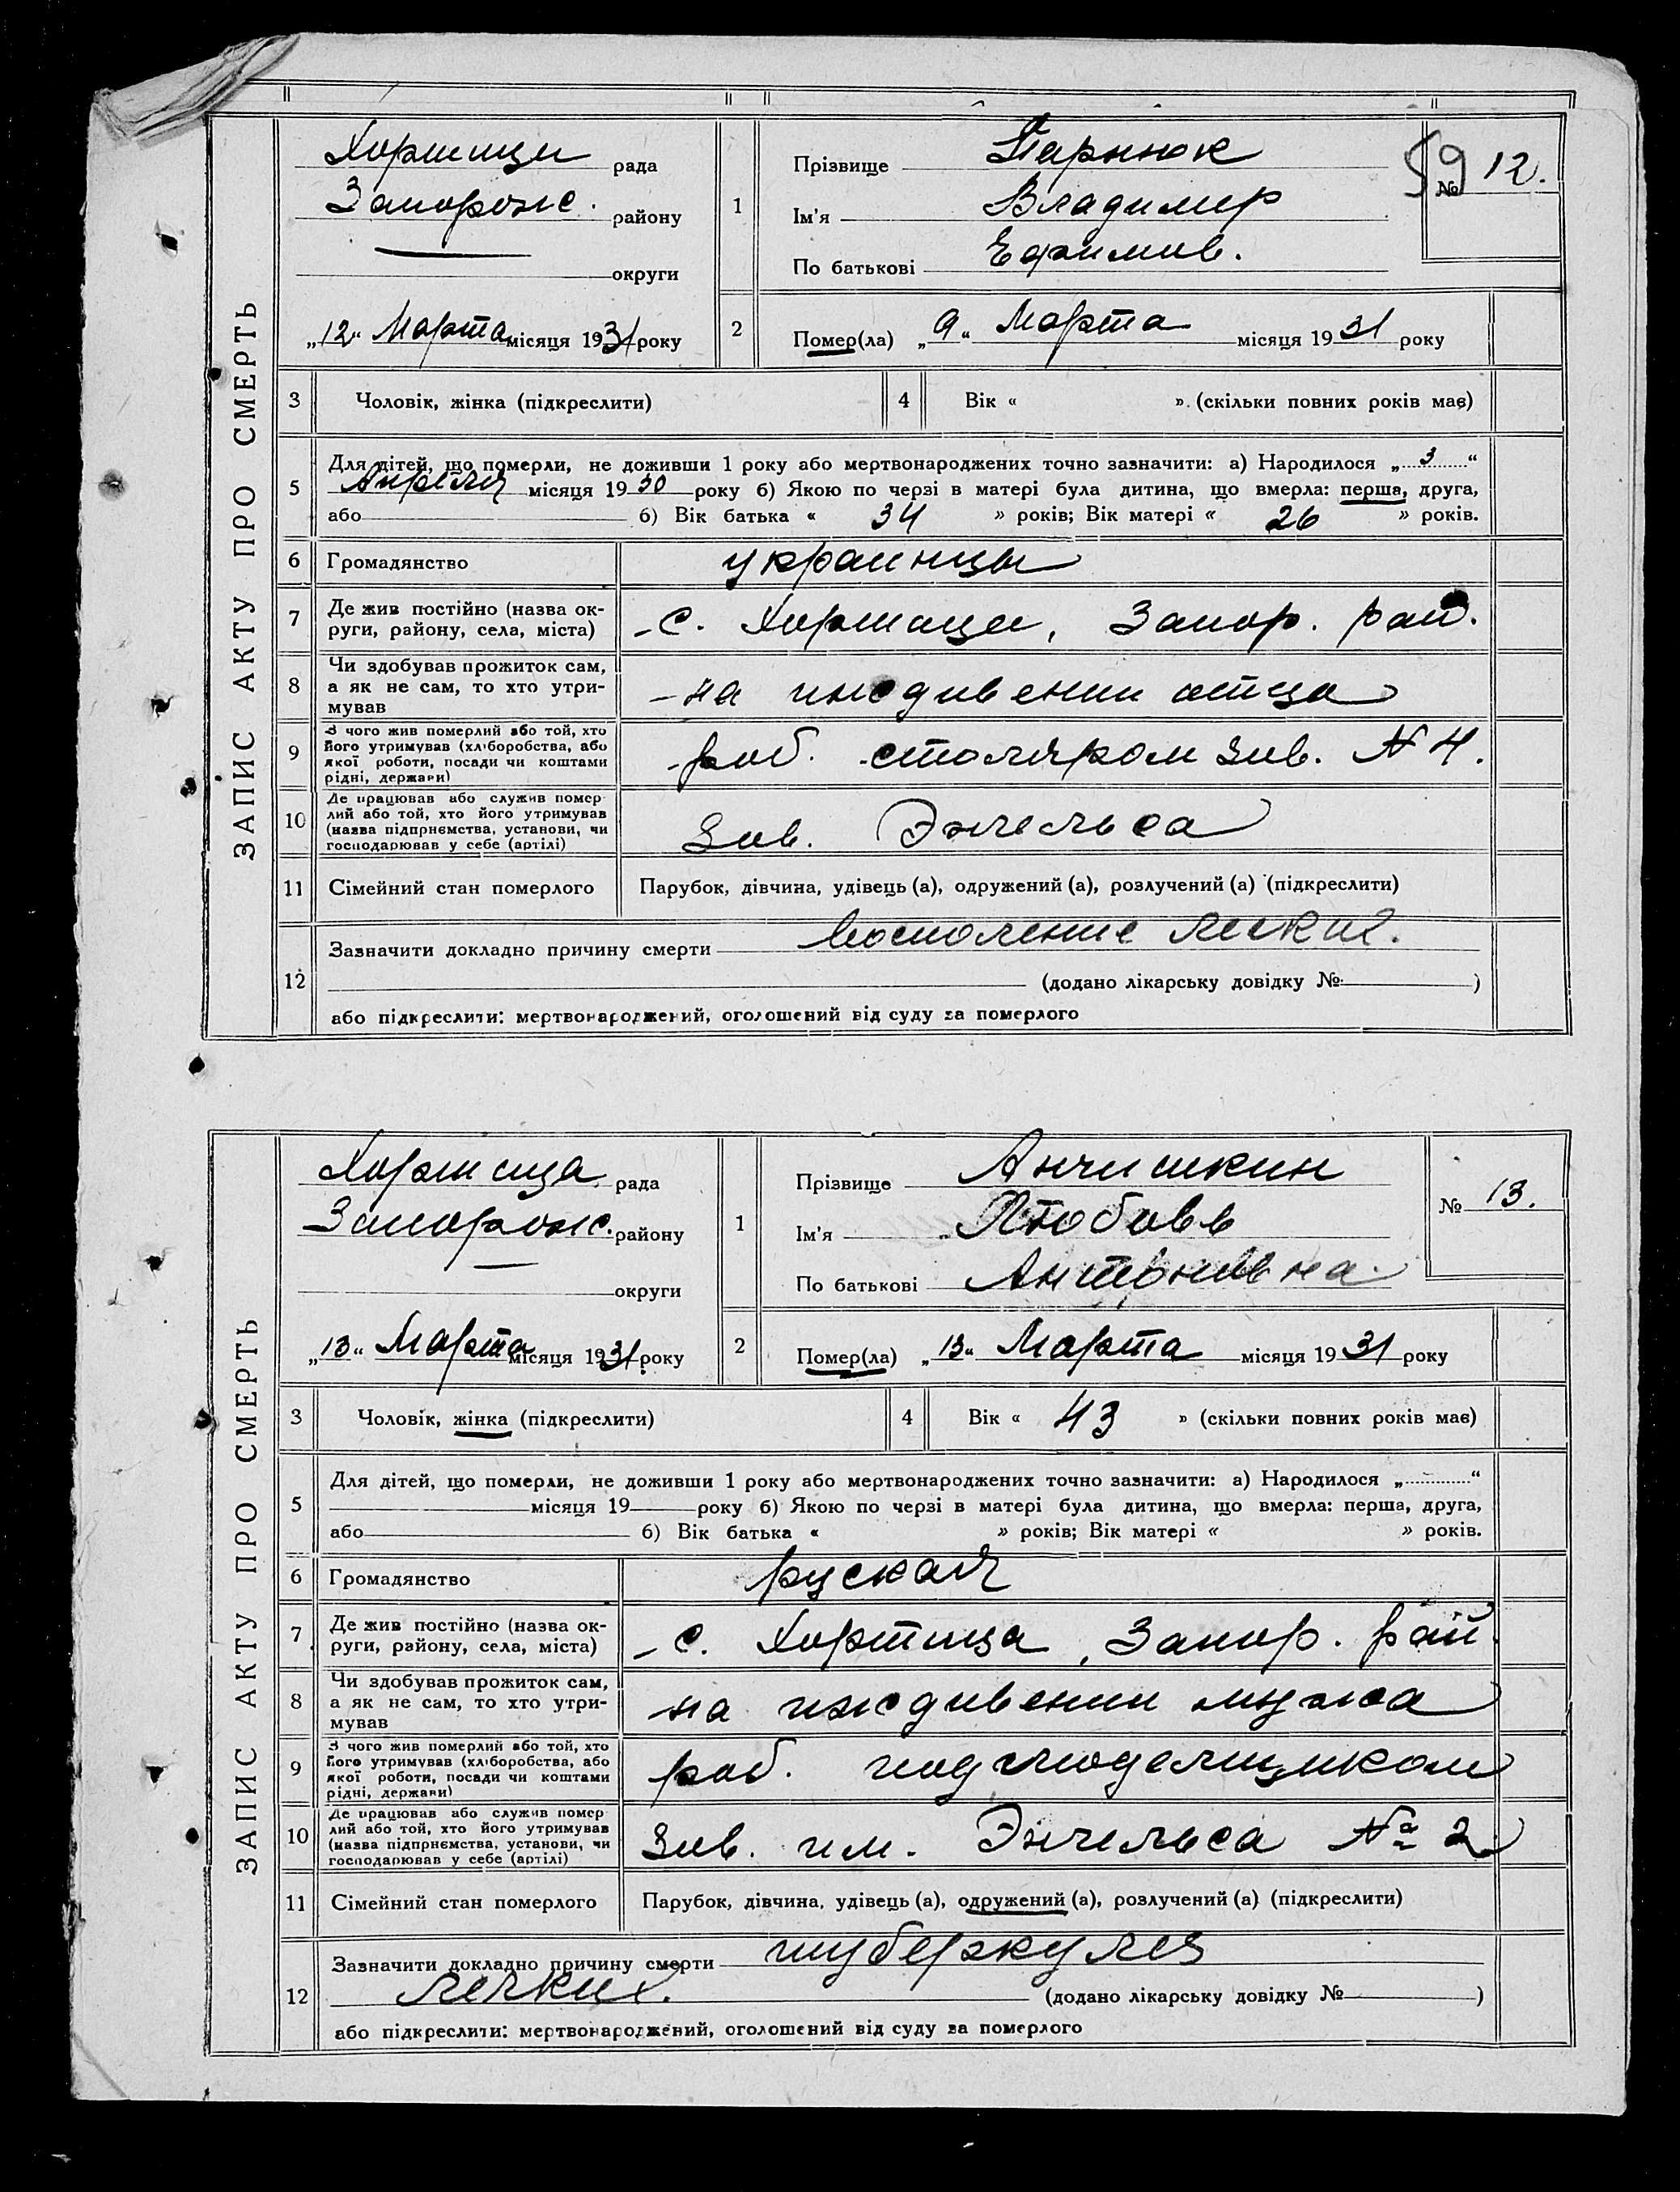 ЗАПИС АКТУ ПРО СМЕРТЬ
Хортици рада
Запорож. району
округи
„12“ Марта місяця 1931 року
1
Прізвище Парнюк
Ім'я Владимир
По батькові Ефимов.
59
№ 12.
2
Помер(ла) „9“ Марта місяця 1931 року
3 Чоловік, жінка (підкреслити)
4 Вік « » (скільки повних років має)
5
Для дітей, що померли, не доживши 1 року або мертвонароджених точно зазначити: а) Народилося „3“
Апреля місяця 1930 року б) Якою по черзі в матері була дитина, що вмерла: перша, друга,
або б) Вік батька « 34 » років; Вік матері « 26 » років.
6 Громадянство украинцы
7 Де жив постійно (назва ок-
руги, району, села, міста)
с. Хортица, Запор. рай.
8 Чи здобував прожиток сам,
а як не сам, то хто утри-
мував
на иждивении отца
9 З чого жив померлий або той, хто
його утримував (хліборобства, або
якої роботи, посади чи коштами
рідні, держави)
раб. столяром зав. N 4.
10 Де працював або служив помер
лий або той, хто його утримував
(назва підприємства, установи, чи
господарював у себе (артілі)
Зав. Энгельса
11 Сімейний стан померлого Парубок, дівчина, удівець (а), одружений (а), розлучений (а) (підкреслити)
12
Зазначити докладно причину смерти Воспаление легких.
(додано лікарську довідку № )
або підкреслити: мертвонароджений, оголошений від суду за померлого
ЗАПИС АКТУ ПРО СМЕРТЬ
Хортица рада
Запорож. району
округи
„13“ Марта місяця 1931 року
1
Прізвище Анчишкин
Ім'я Любовь
По батькові Антоновна
№ 13.
2
Помер(ла) „13“ Марта місяця 1931 року
3 Чоловік, жінка (підкреслити)
4 Вік « 43 » (скільки повних років має)
5
Для дітей, що померли, не доживши 1 року або мертвонароджених точно зазначити: а) Народилося „ “
місяця 19 року б) Якою по черзі в матері була дитина, що вмерла: перша, друга,
або б) Вік батька « » років; Вік матері « » років.
6 Громадянство руская
7 Де жив постійно (назва ок-
руги, району, села, міста)
с. Хортица, Запор. рай
8 Чи здобував прожиток сам,
а як не сам, то хто утри-
мував
на иждивении мужа
9 З чого жив померлий або той, хто
його утримував (хліборобства, або
якої роботи, посади чи коштами
рідні, держави)
раб. подмодельщиком
10 Де працював або служив помер
лий або той, хто його утримував
(назва підприємства, установи, чи
господарював у себе (артілі)
Зав. им. Энгельса № 2
11 Сімейний стан померлого Парубок, дівчина, удівець (а), одружений (а), розлучений (а) (підкреслити)
12
Зазначити докладно причину смерти туберкулез
легких. (додано лікарську довідку № )
або підкреслити: мертвонароджений, оголошений від суду за померлого